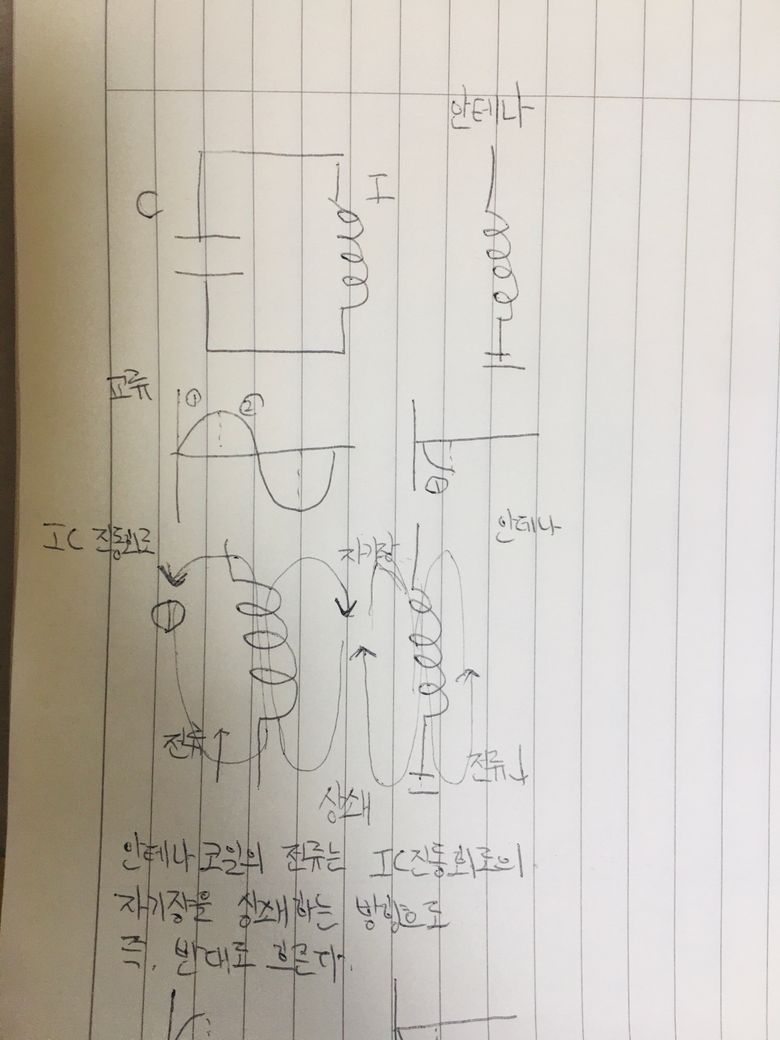 안테나
C
I
교류
① ②
①
IC 진동회로
자기장
안테나
①
전류↑
전류↓
상쇄
안테나 코일의 전류는 IC진동회로의
자기장을 상쇄하는 방향으로
즉, 반대로 흐른다.